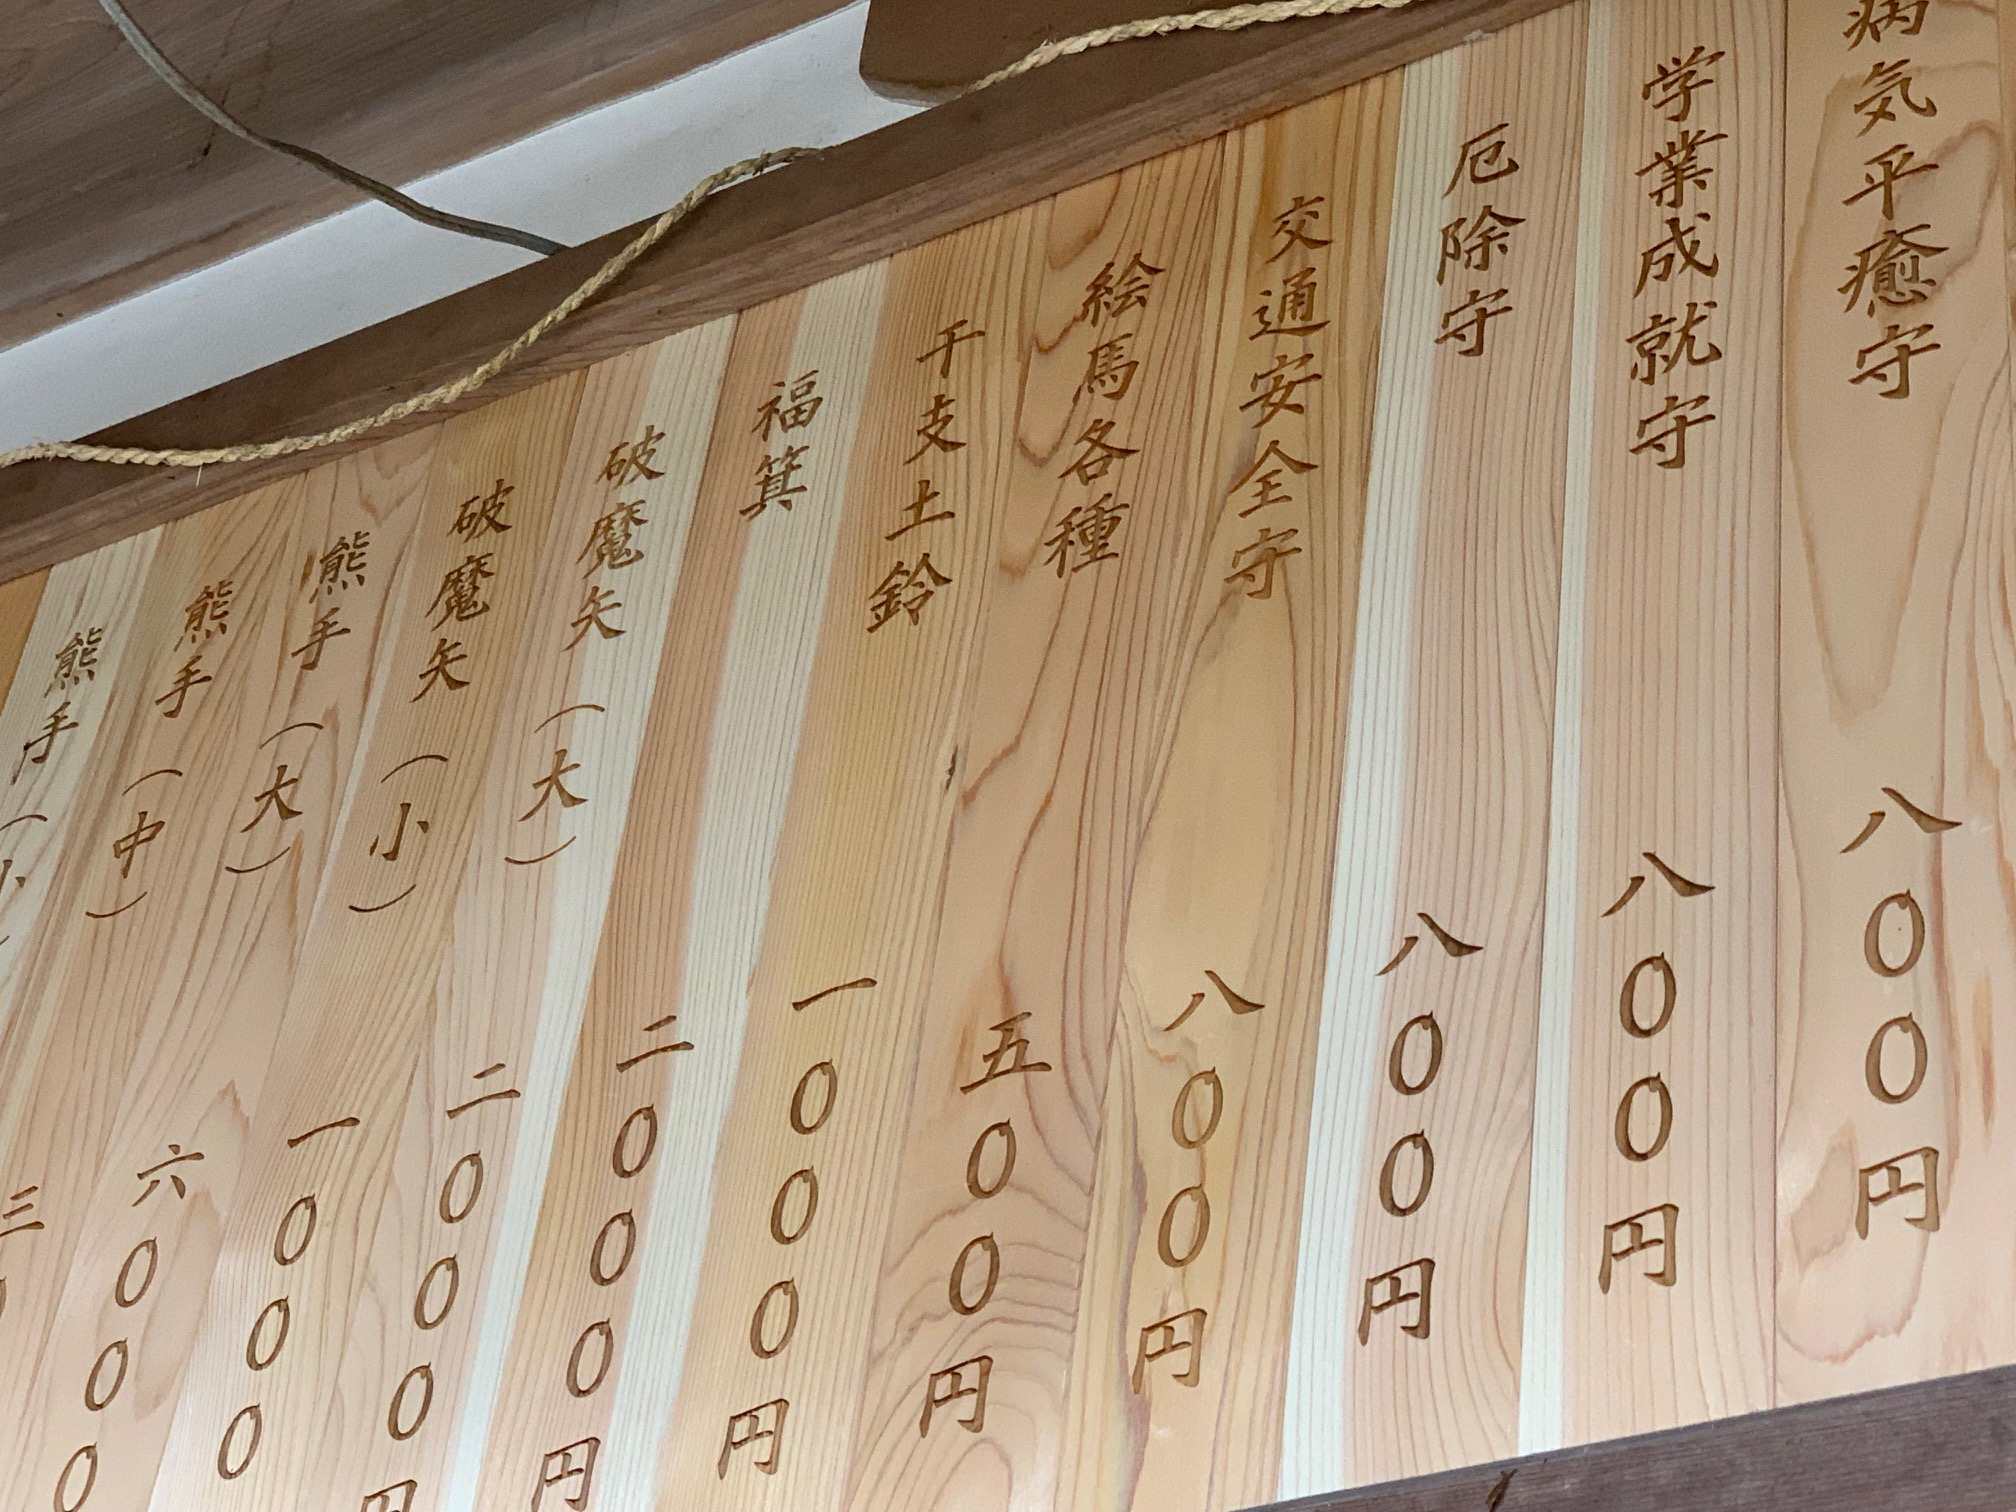 病気平癒守 八〇〇円
学業成就守 八〇〇円
厄除守 八〇〇円
交通安全守 八〇〇円
絵馬各種 五〇〇円
干支土鈴 一〇〇〇円
福箕 二〇〇〇円
破魔矢(大) 二〇〇〇円
破魔矢(小) 一〇〇〇
熊手(大) 六〇〇〇
熊手(中) 三
熊手(小